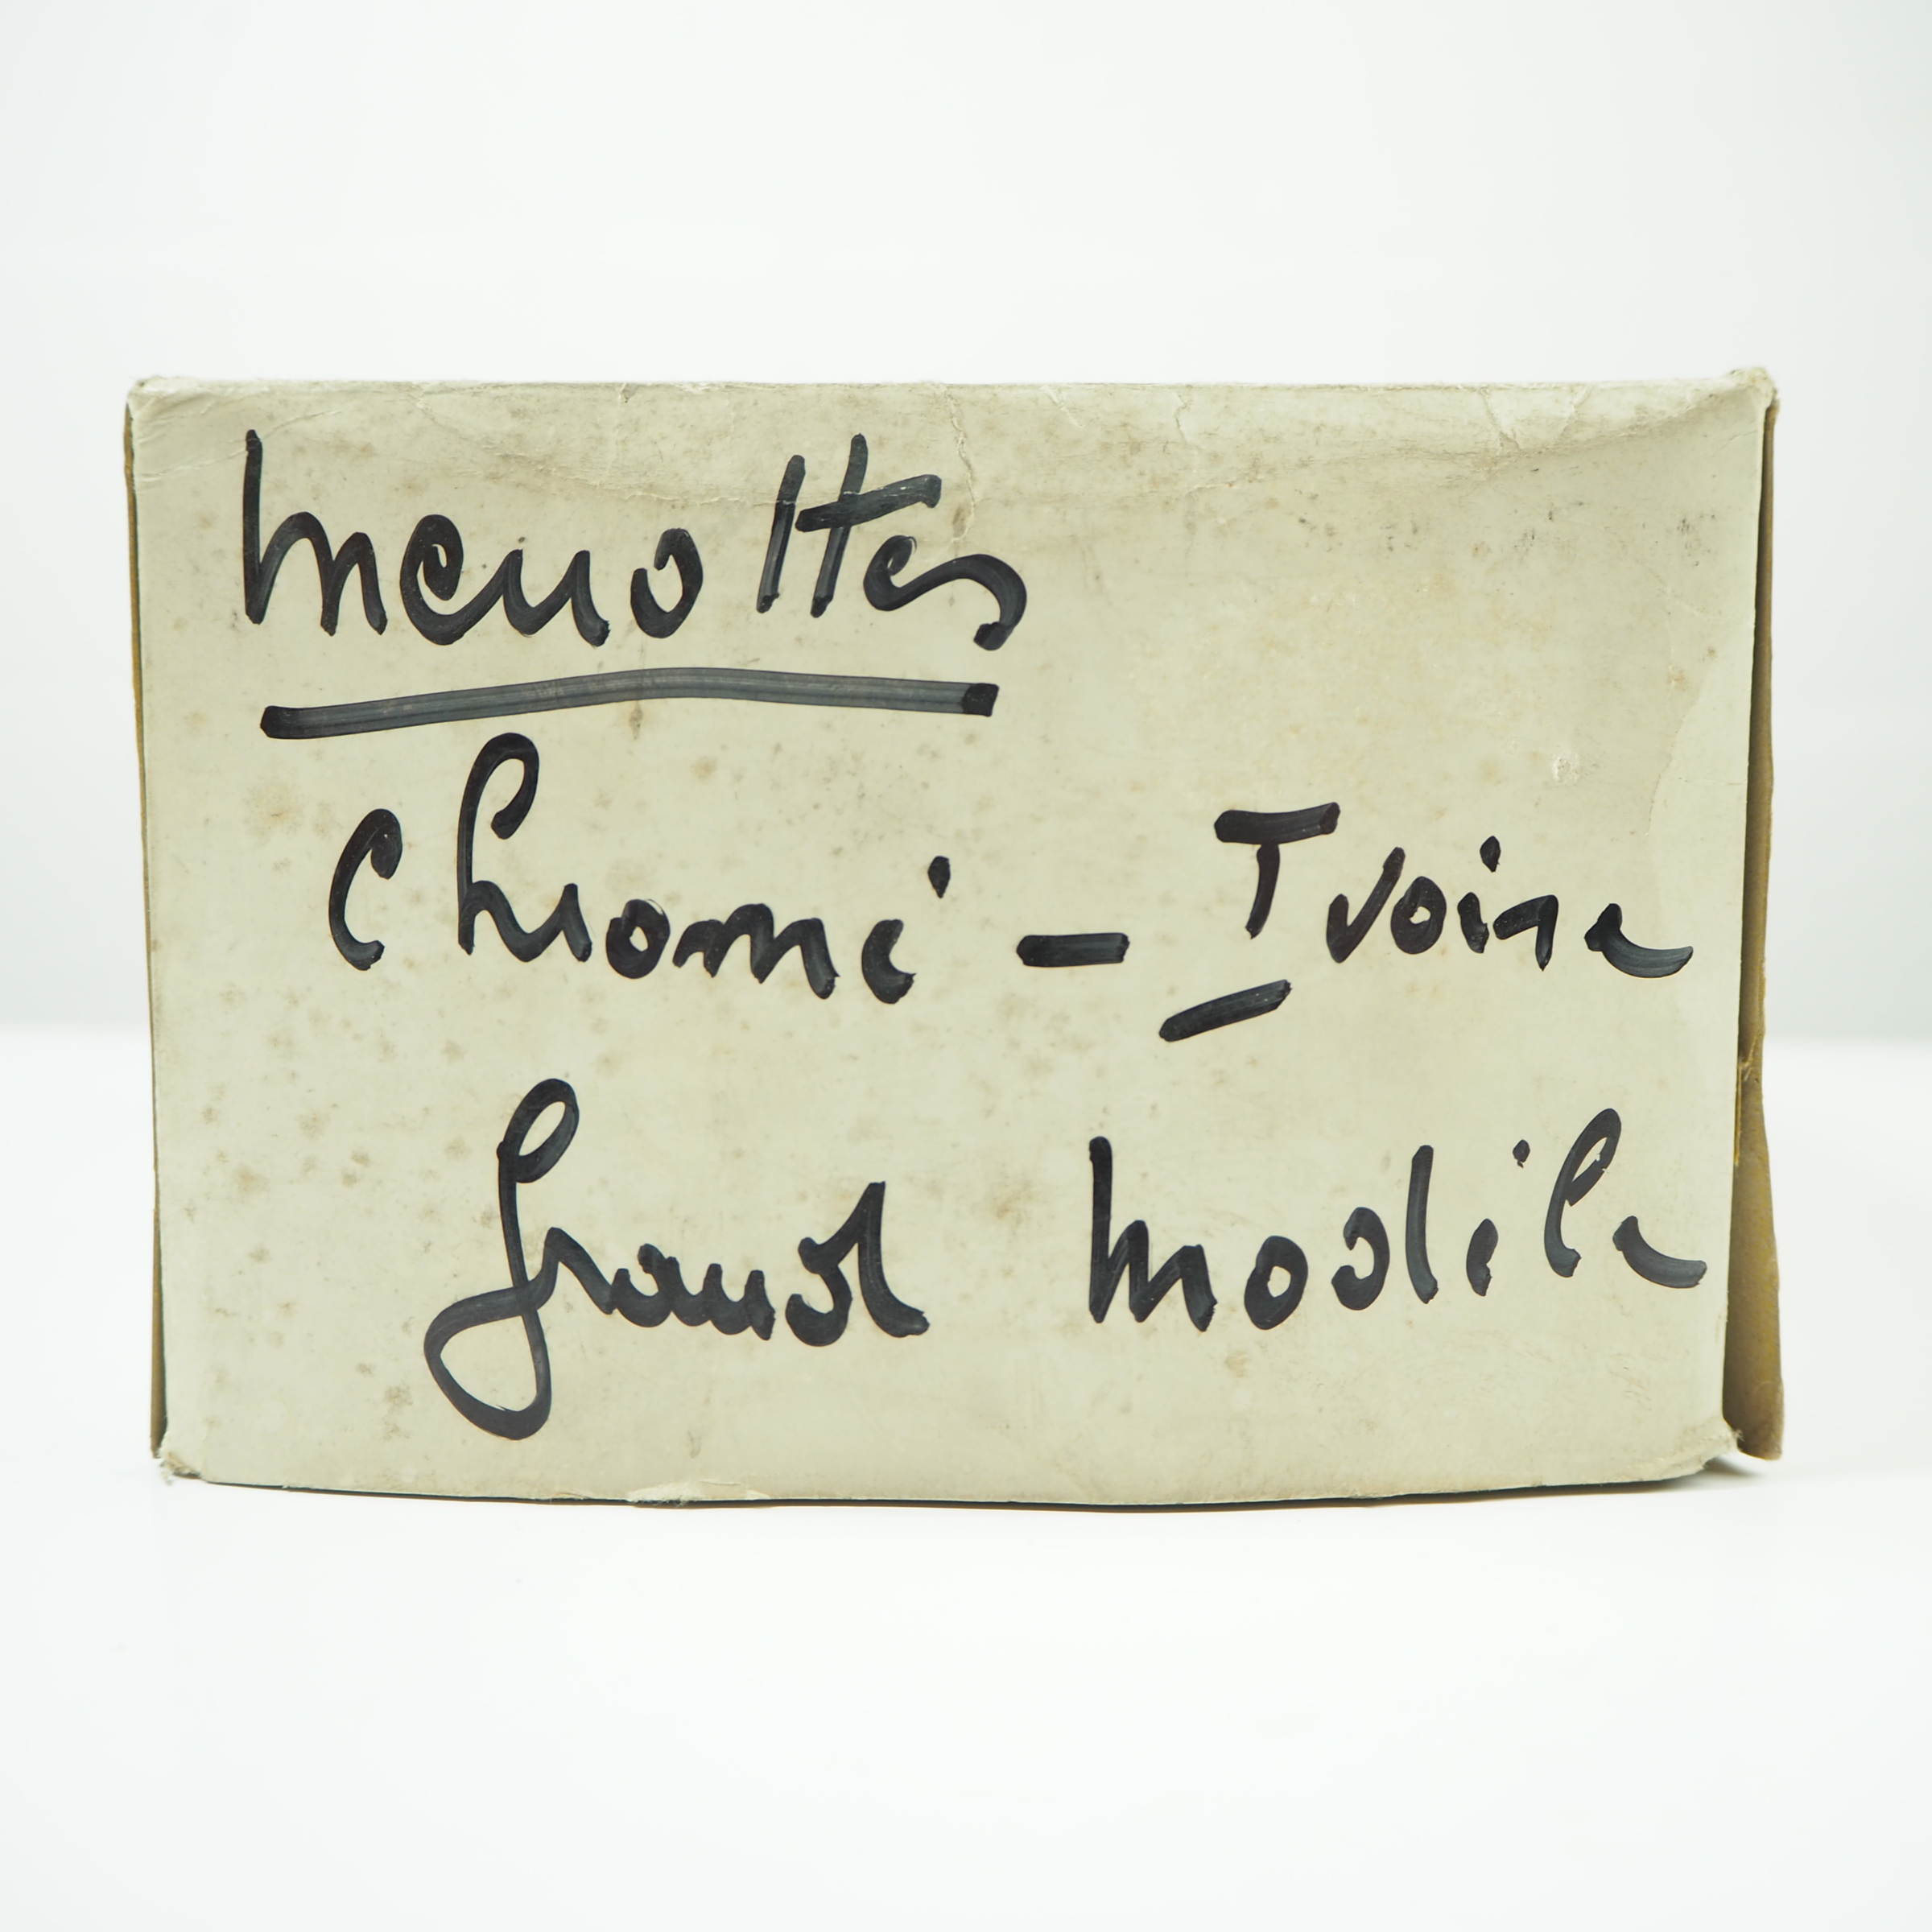 Menottes
Chromé - Ivoire
Grand Modèle